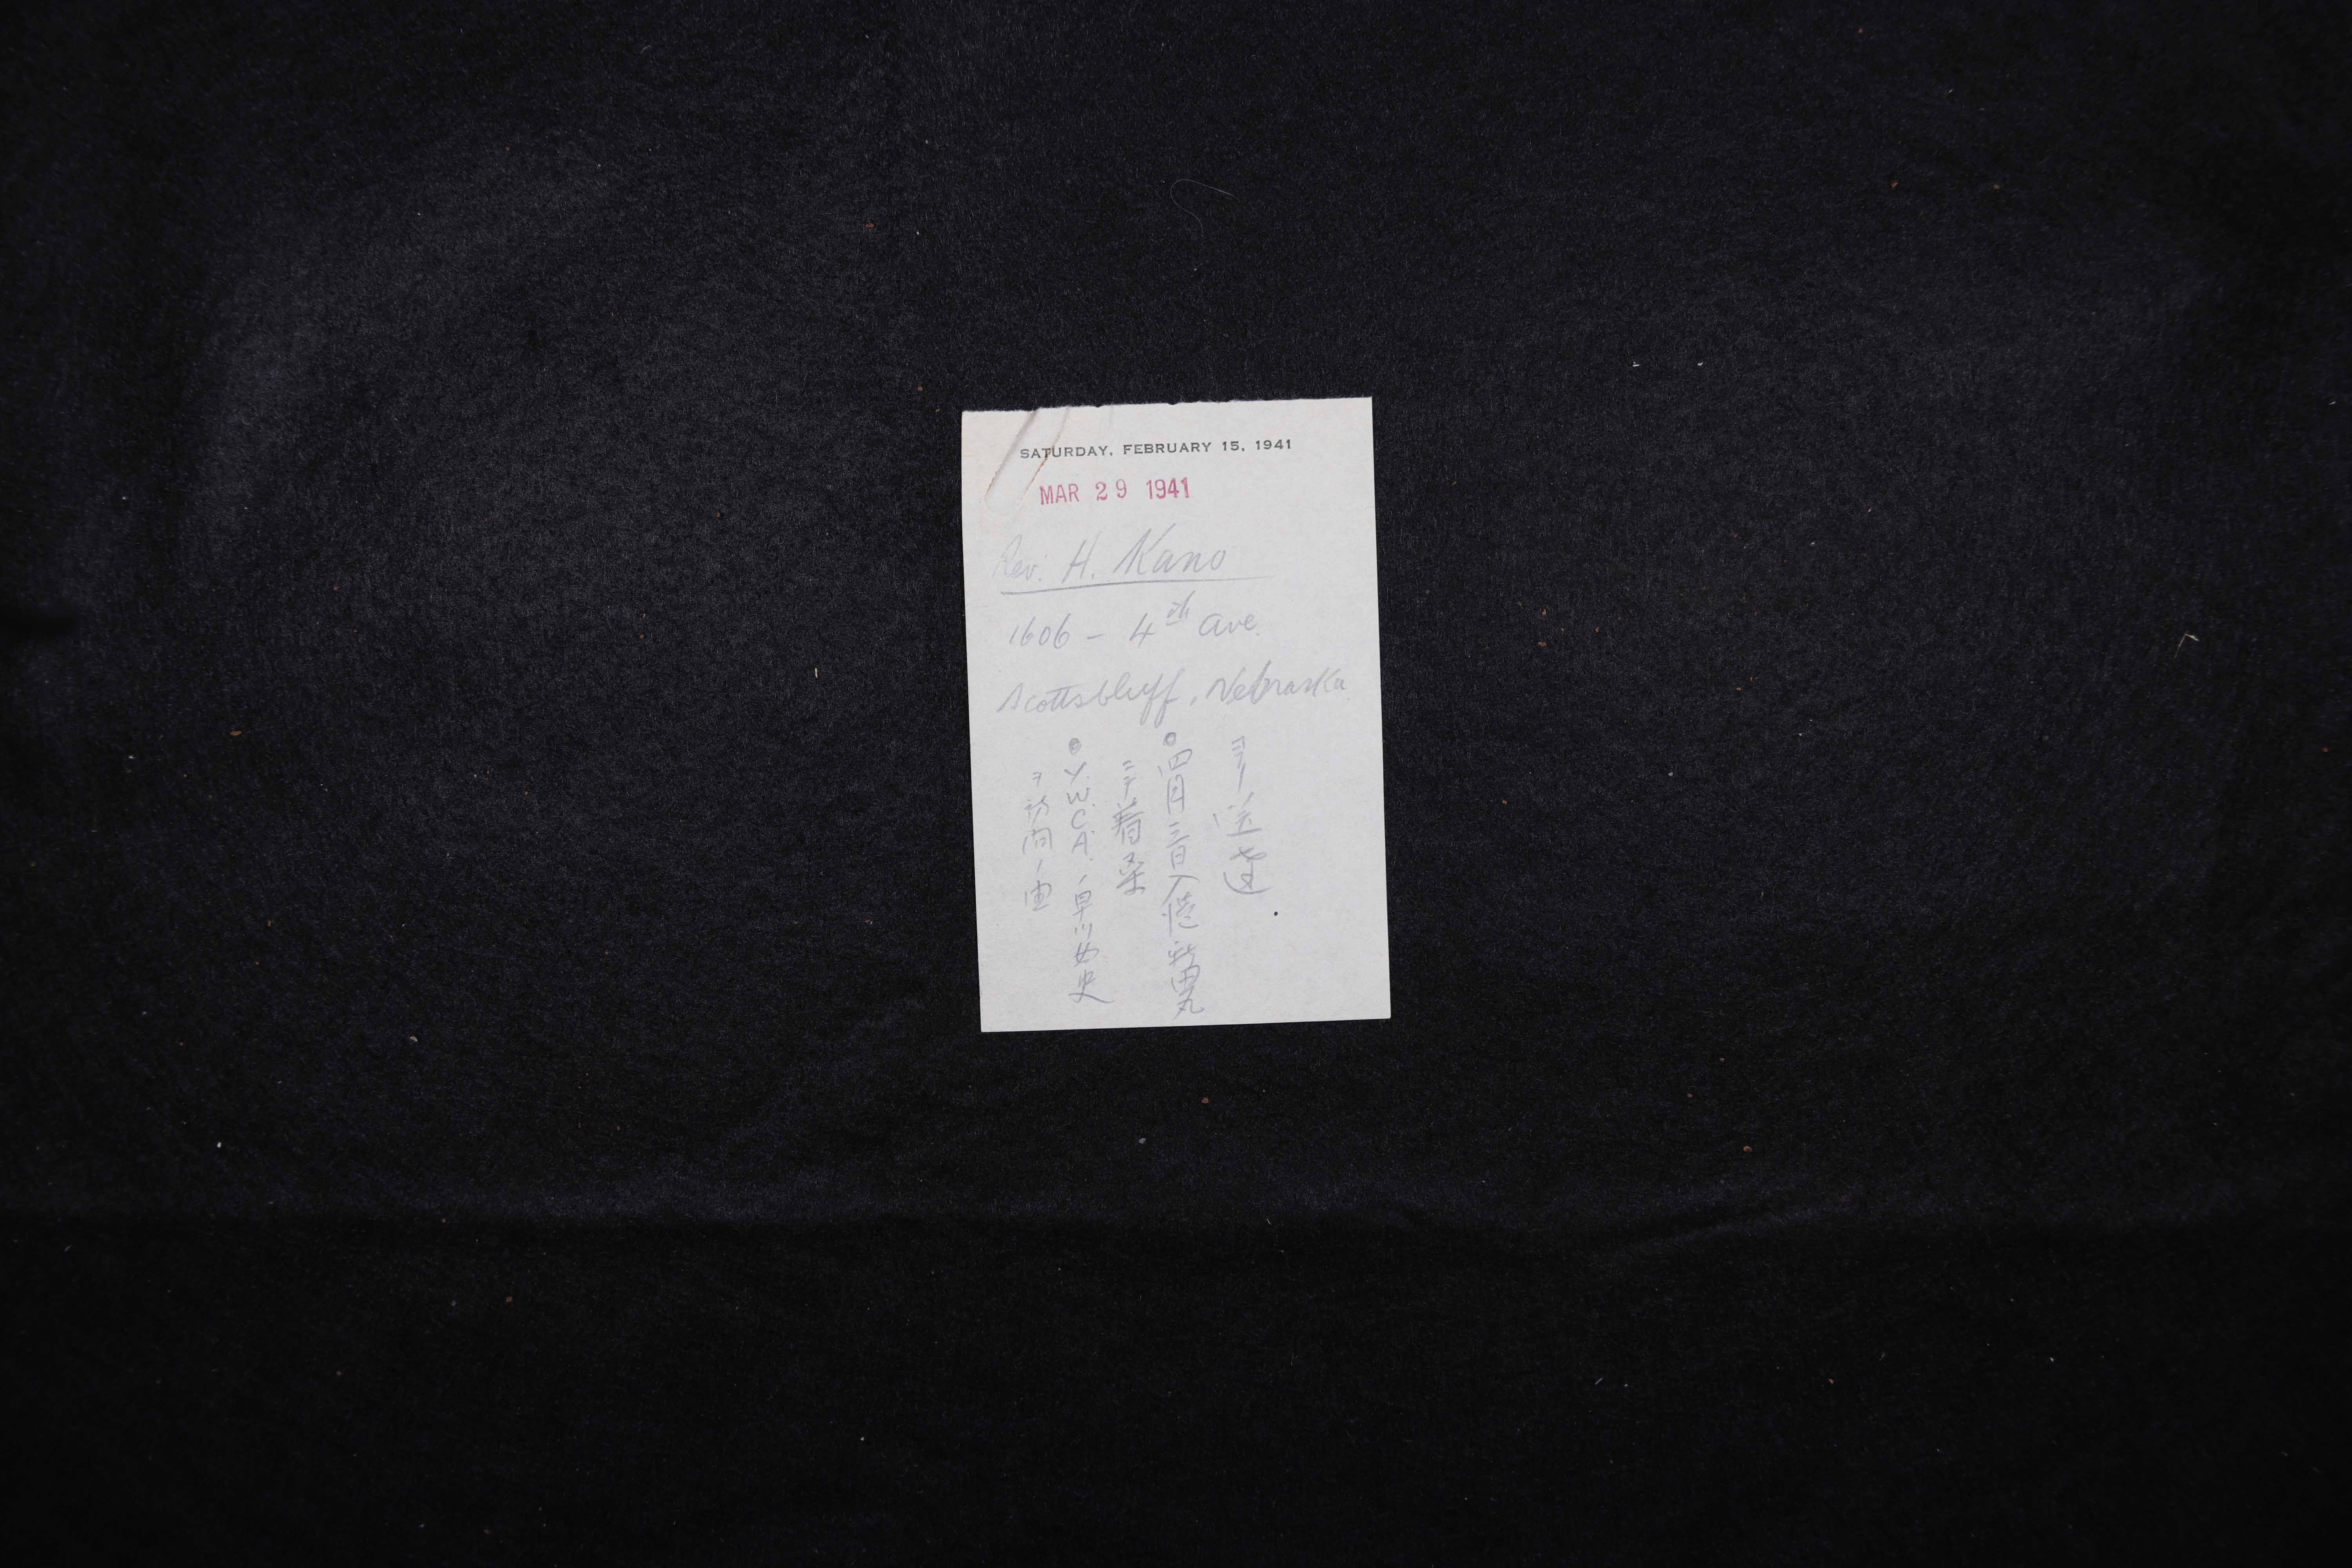 SATURDAY, FEBRUARY 15, 1941
MAR 29 1941
Rev. H. Kano
1606 - 4th Ave.
Scottsbluff, Nebraska
送達
四月三日入港 田丸
ニテ着桑
Y.W.C.A. 早川女史
ヲ訪問ノ由